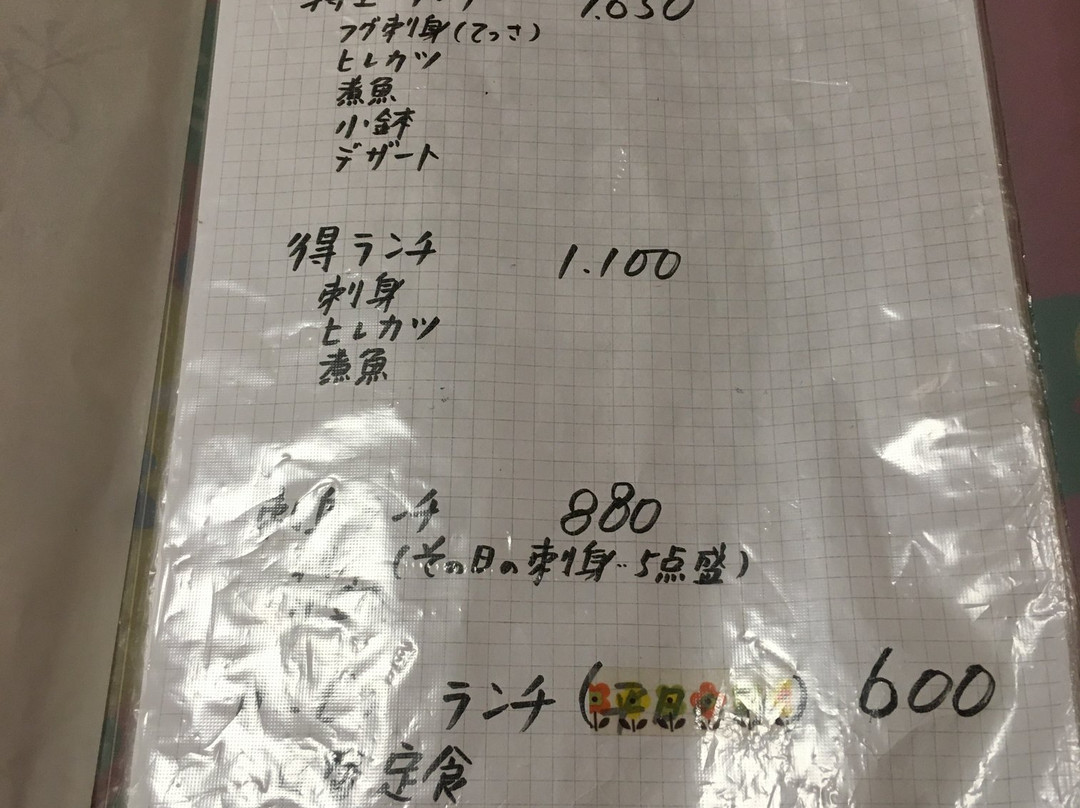 1.650
フグ刺身(てっさ)
ヒレカツ
煮魚
小鉢
デザート
得ランチ 1.100
刺身
ヒレカツ
煮魚
ンチ 880
(その日の刺身‥5点盛)
ランチ( ) 600
定食